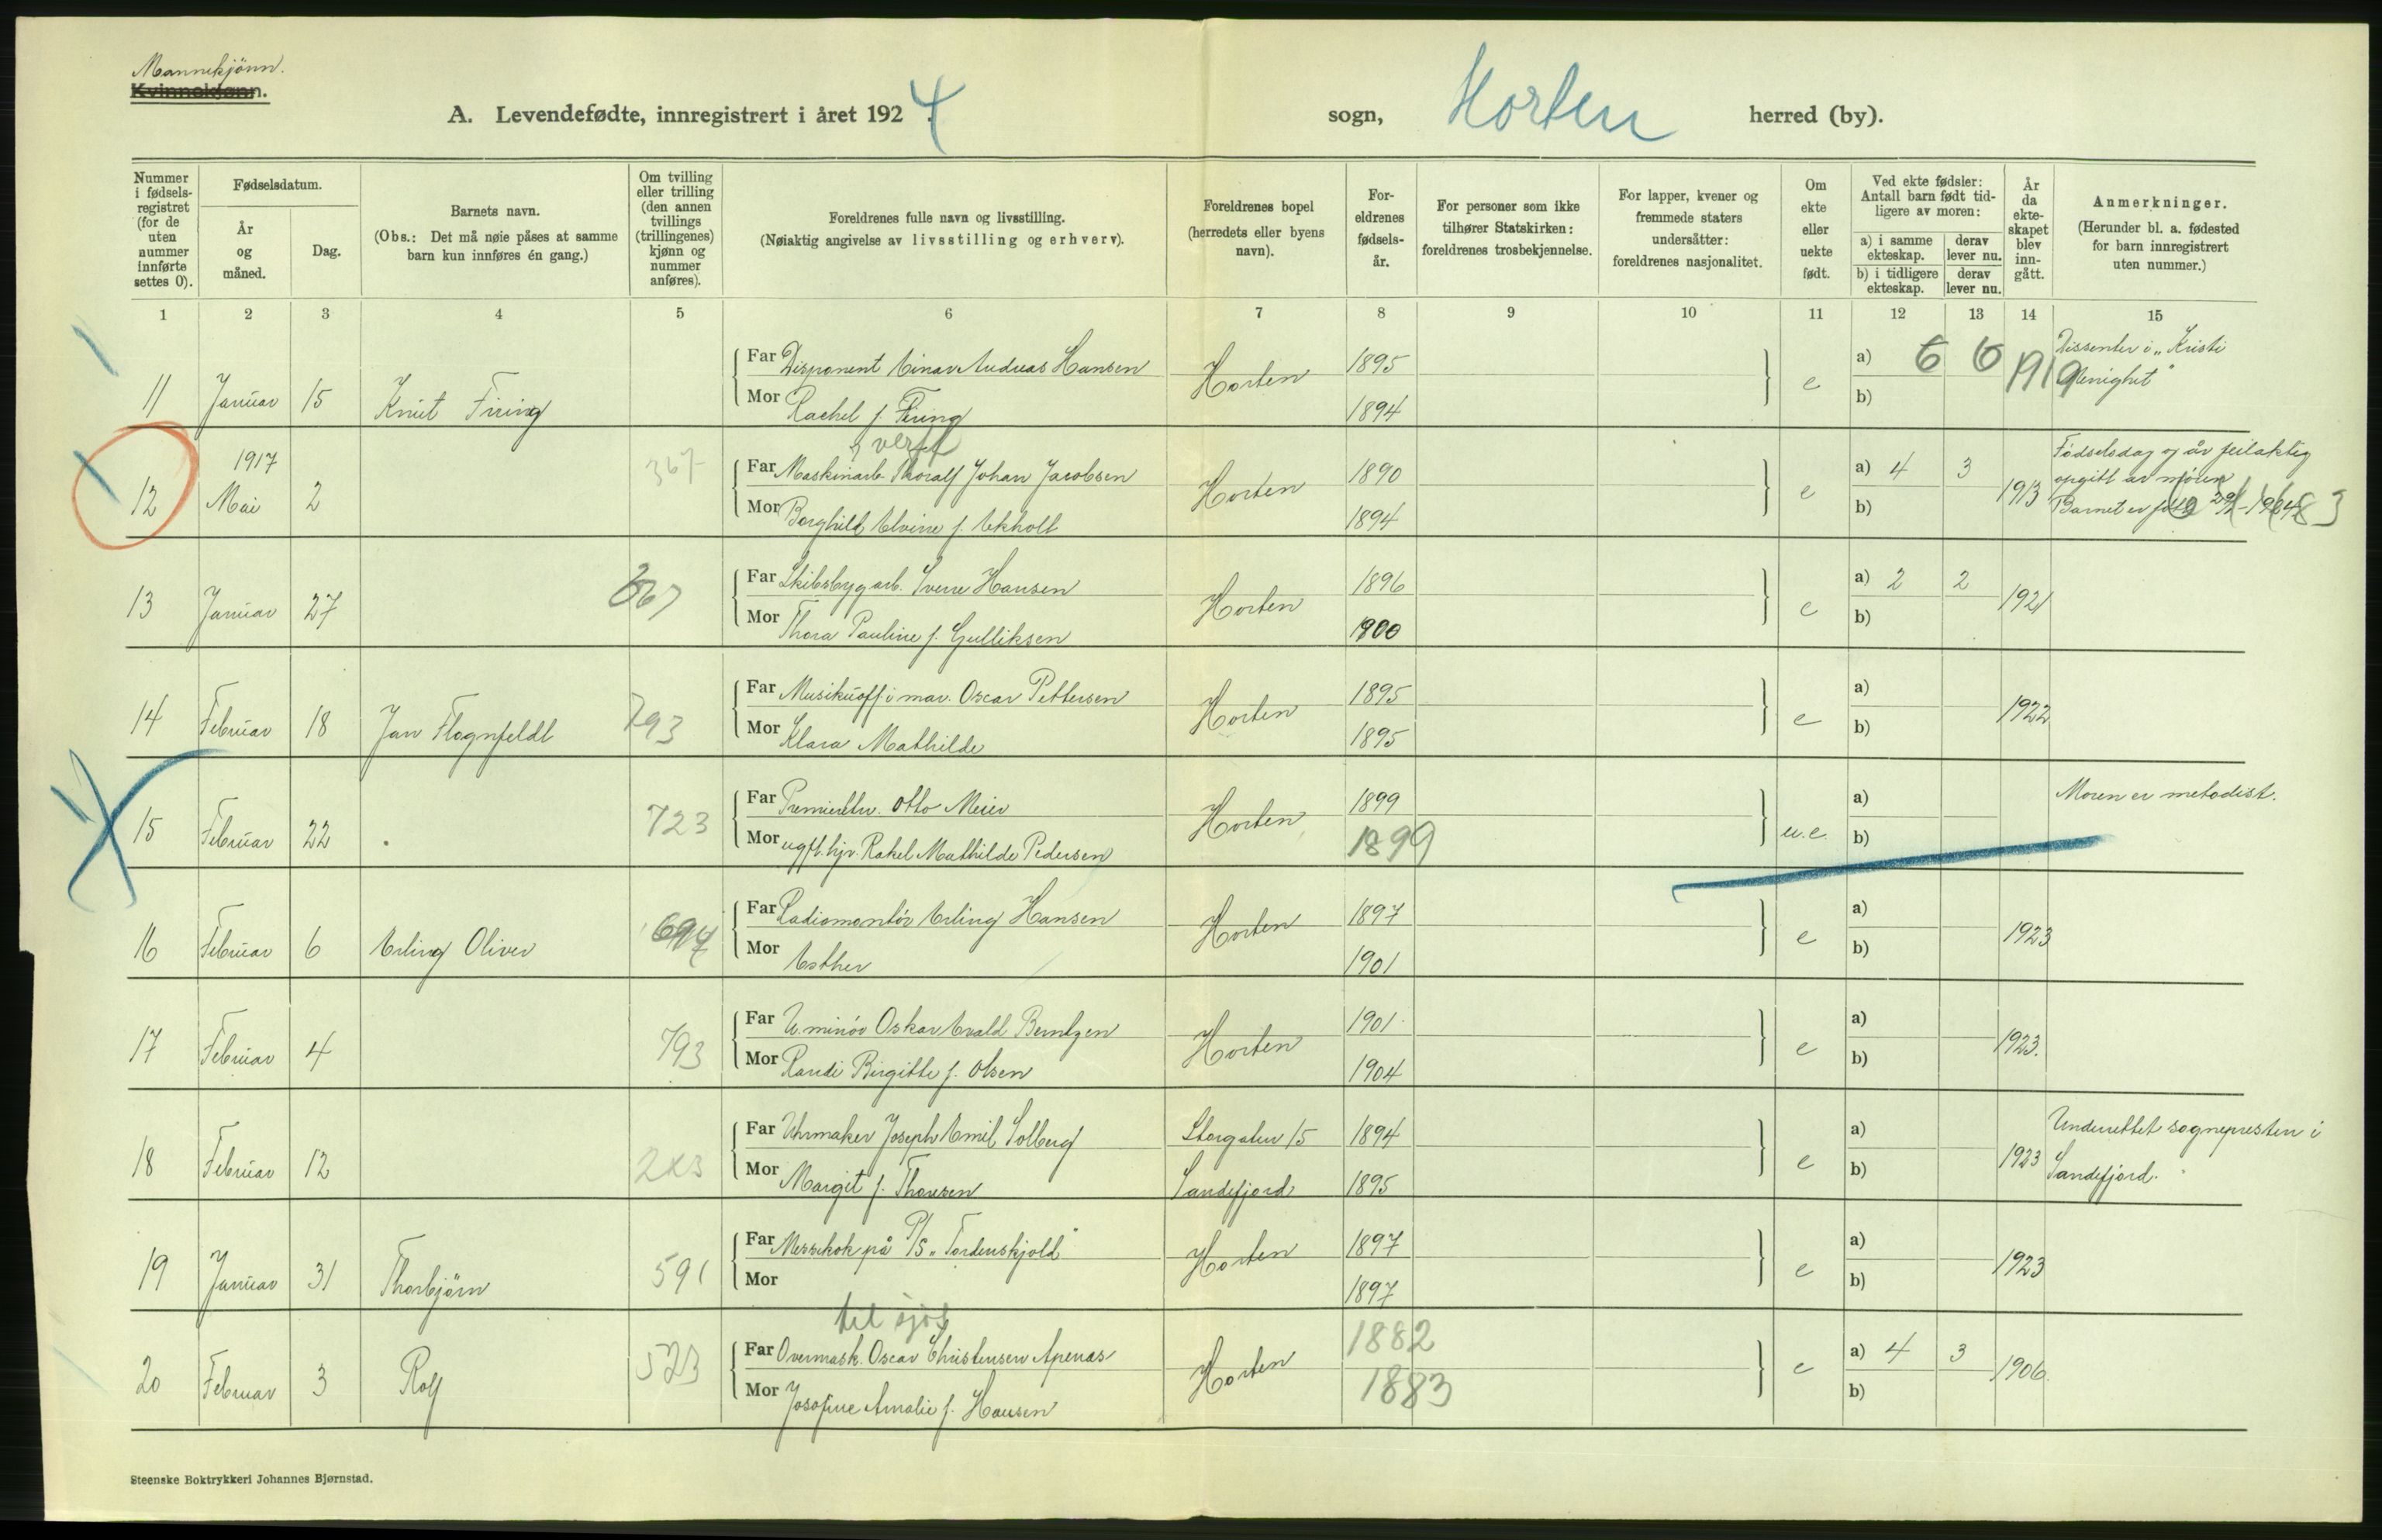 Mannekjønn.
Kvinnekjønn.
A. Levendefødte, innregistrert i året 1924 sogn, Horten herred (by).
Nummer i fødsels-registret (for de uten nummer innførte settes 0).
Fødselsdatum.
År og måned.
Dag.
Barnets navn.
(Obs.: Det må nøie påses at samme barn kun innføres én gang.)
Om tvilling eller trilling (den annen tvillings (trillingenes) kjønn og nummer anføres).
Foreldrenes fulle navn og livsstilling.
(Nøiaktig angivelse av livsstilling og erhverv).
Foreldrenes bopel (herredets eller byens navn).
For-eldrenes fødsels-år.
For personer som ikke tilhører Statskirken: foreldrenes trosbekjennelse.
For lapper, kvener og fremmede staters undersåtter: foreldrenes nasjonalitet.
Om ekte eller uekte født.
Ved ekte fødsler: Antall barn født tid-ligere av moren:
a) i samme ekteskap.
derav lever nu.
b) i tidligere ekteskap.
derav lever nu.
År da ekte-skapet blev inn-gått.
Anmerkninger.
(Herunder bl. a. fødested for barn innregistrert uten nummer.)
1 2 3 4 5 6 7 8 9 10 11 12 13 14 15
Far Disponent Einar Andreas Hansen 1895 a) 6 6 Dissenter i „Kristi
11 Januar 15 Knut Firing Horten e 1919 Menighet"
Mor Rachel f. Firing 1894 b)
verft
1917 367 Far Maskinarb. Thoralf Johan Jacobsen 1890 a) 4 3 Fødselsdag og år feilaktig
12 Mai 2 Horten e 1913 opgitt av
Mor Borghild Elvine f. Ekholt 1894 b) Barnet er
Far Skibsbygarb. Sverre Hansen 1896 a) 2 2
13 Januar 27 367 Horten e 1921
Mor Thora Pauline f. Gulliksen 1900 b)
Far Musikuoff. i mar. Oscar Pettersen 1895 a)
14 Februar 18 Jan Flognfeldt 793 Horten e 1922
Mor Klara Mathilde 1895 b)
Far Premierltn. Otto Meier 1899 a) Moren er metodist.
15 Februar 22 723 Horten u.e.
Mor ugft. hjv. Rakel Mathilde Pedersen 1899 b)
Far Radiomontør Erling Hansen 1897 a)
16 Februar 6 Erling Oliver 694 Horten e 1923
Mor Esther 1901 b)
Far U.minör Oskar Evald Berntzen 1901 a)
17 Februar 4 793 Horten e 1923.
Mor Randi Birgitte f. Olsen 1904 b)
Far Uhrmaker Joseph Emil Solberg Storgaten 15 1894 a) Underrettet sognepresten i
18 Februar 12 e 1923
Mor Margit f. Thorsen Sandefjord 1895 b) Sandefjord.
Far Messekok på P/S „Tordenskjold" 1897 a)
19 Januar 31 Thorbjørn 591 Horten e 1923
Mor 1897 b)
til sjøs
Far Overmask. Oscar Christensen Apenæs 1882 a) 4 3
20 Februar 3 Rolf 523 Horten e 1906.
Mor Josefine Amalie f. Hansen 1883 b)
Steenske Boktrykkeri Johannes Bjørnstad.